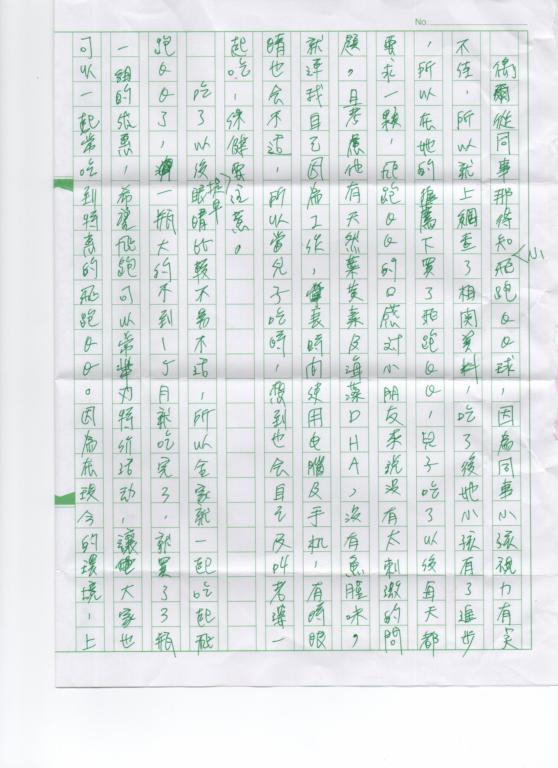 No
偶爾從同事那得知飛跑QQ球，因為同事小孩視力有突
不佳，所以就上網查了相關資料，吃了後她小孩有了進步
，所以在她的推薦下買了飛跑QQ，兒子吃了以後每天都
要求一顆，飛跑QQ的口感對小朋友來說沒有太刺激的問
題，且考慮他有天然葉黃素及海藻DHA，沒有魚腥味，
就連我自己因為工作，長時間使用電腦及手機，有時眼
睛也會不適，所以當兒子吃時，想到也會自己及叫老婆一
起吃，保健要注意。
吃了以後眼睛比較不易不適，所以全家就一起吃起飛
跑QQ了，一瓶大約不到1个月就吃完了，就買了3瓶
一組的優惠，希望飛跑可以常舉力特价活動，讓大家也
可以一起常吃到特惠的飛跑QQ。因為在現今的環境，上